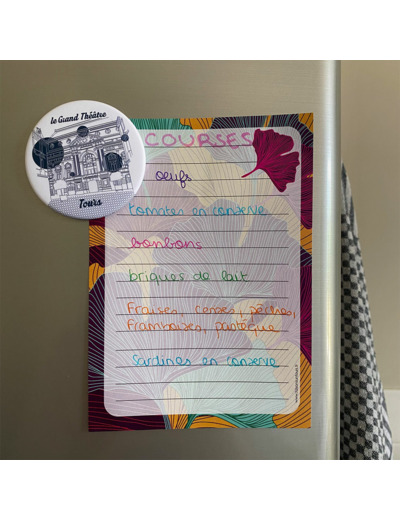 le Grand Théâtre
Tours
COURSES
oeufs
tomates en conserve
bonbons
briques de lait
Fraises, cerises, pêches,
Framboises, pastèque
Sardines en conserve